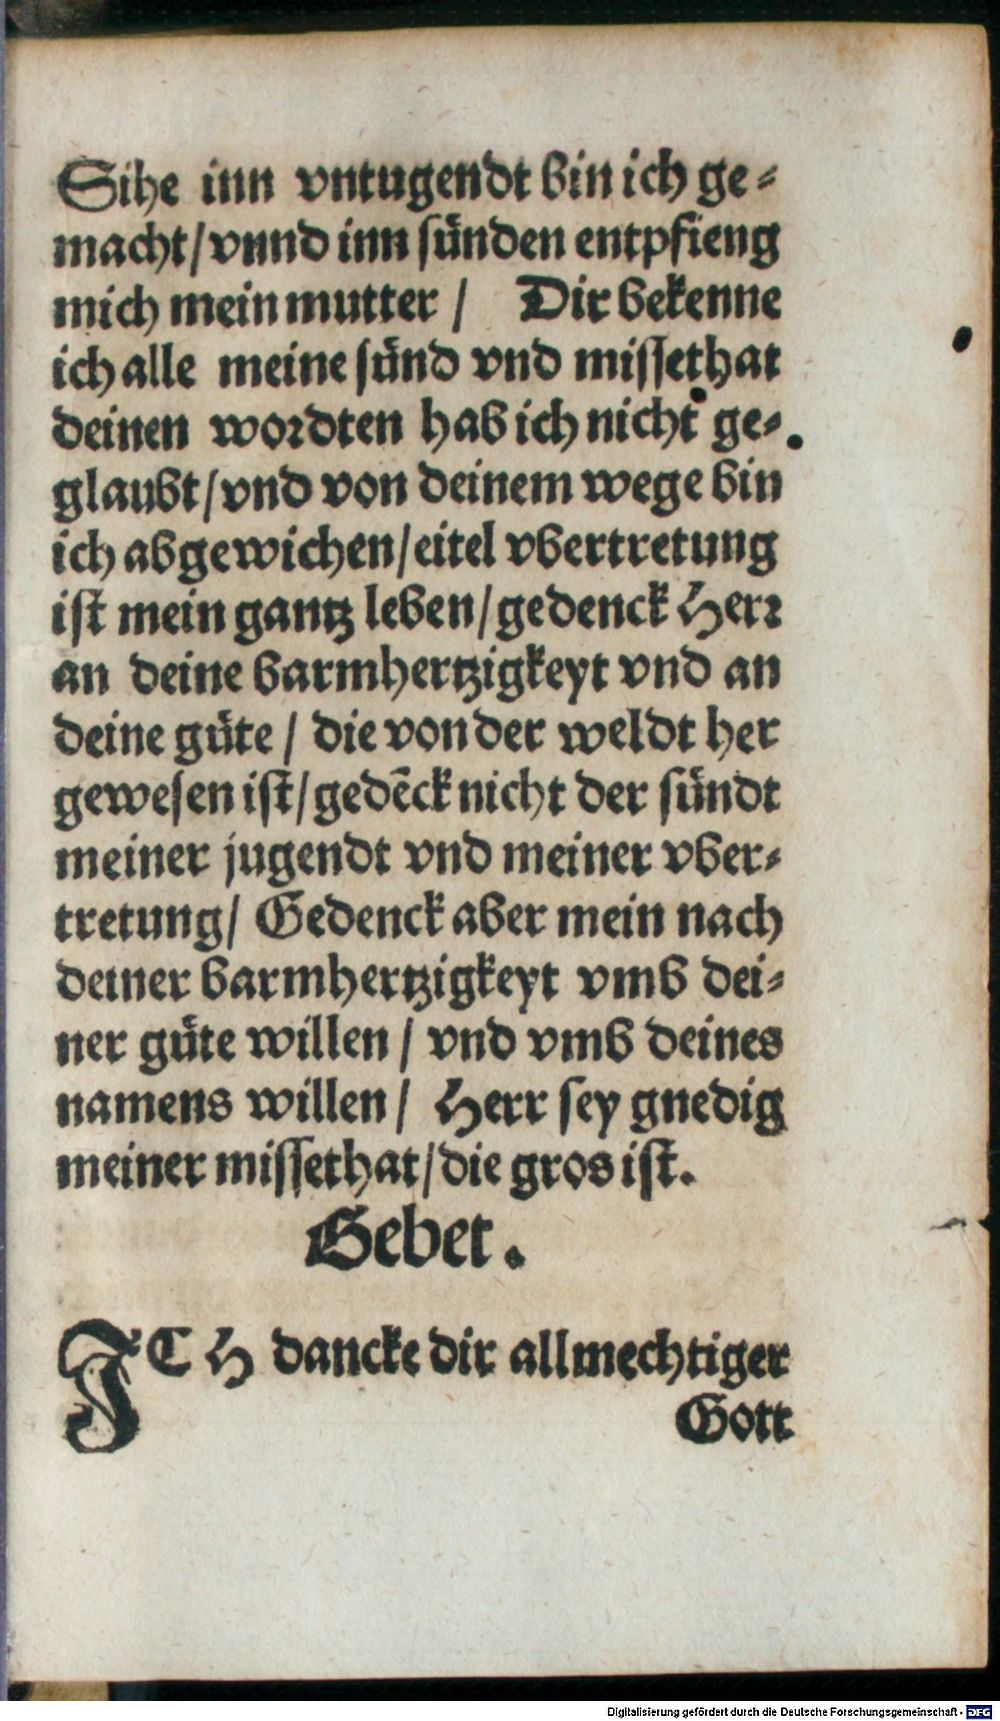 Sihe inn vntugendt bin ich ge⸗
macht/vnnd inn ſuͤnden entpfieng
mich mein mutter / Dir bekenne
ich alle meine ſuͤnd vnd miſſethat
deinen wordten hab ich nicht ge⸗
glaubt/vnd von deinem wege bin
ich abgewichen/eitel vbertretung
iſt mein gantz leben/gedenck Herr
an deine barmhertzigkeyt vnd an
deine guͤte / die von der weldt her
geweſen iſt/gedēck nicht der ſuͤndt
meiner jugendt vnd meiner vber⸗
tretung/ Gedenck aber mein nach
deiner barmhertzigkeyt vmb dei⸗
ner guͤte willen / vnd vmb deines
namens willen / Herr ſey gnedig
meiner miſſethat/die gros iſt.
Gebet.
ICH dancke dir allmechtiger
Gott
Digitalisierung gefördert durch die Deutsche Forschungsgemeinschaft - DFG